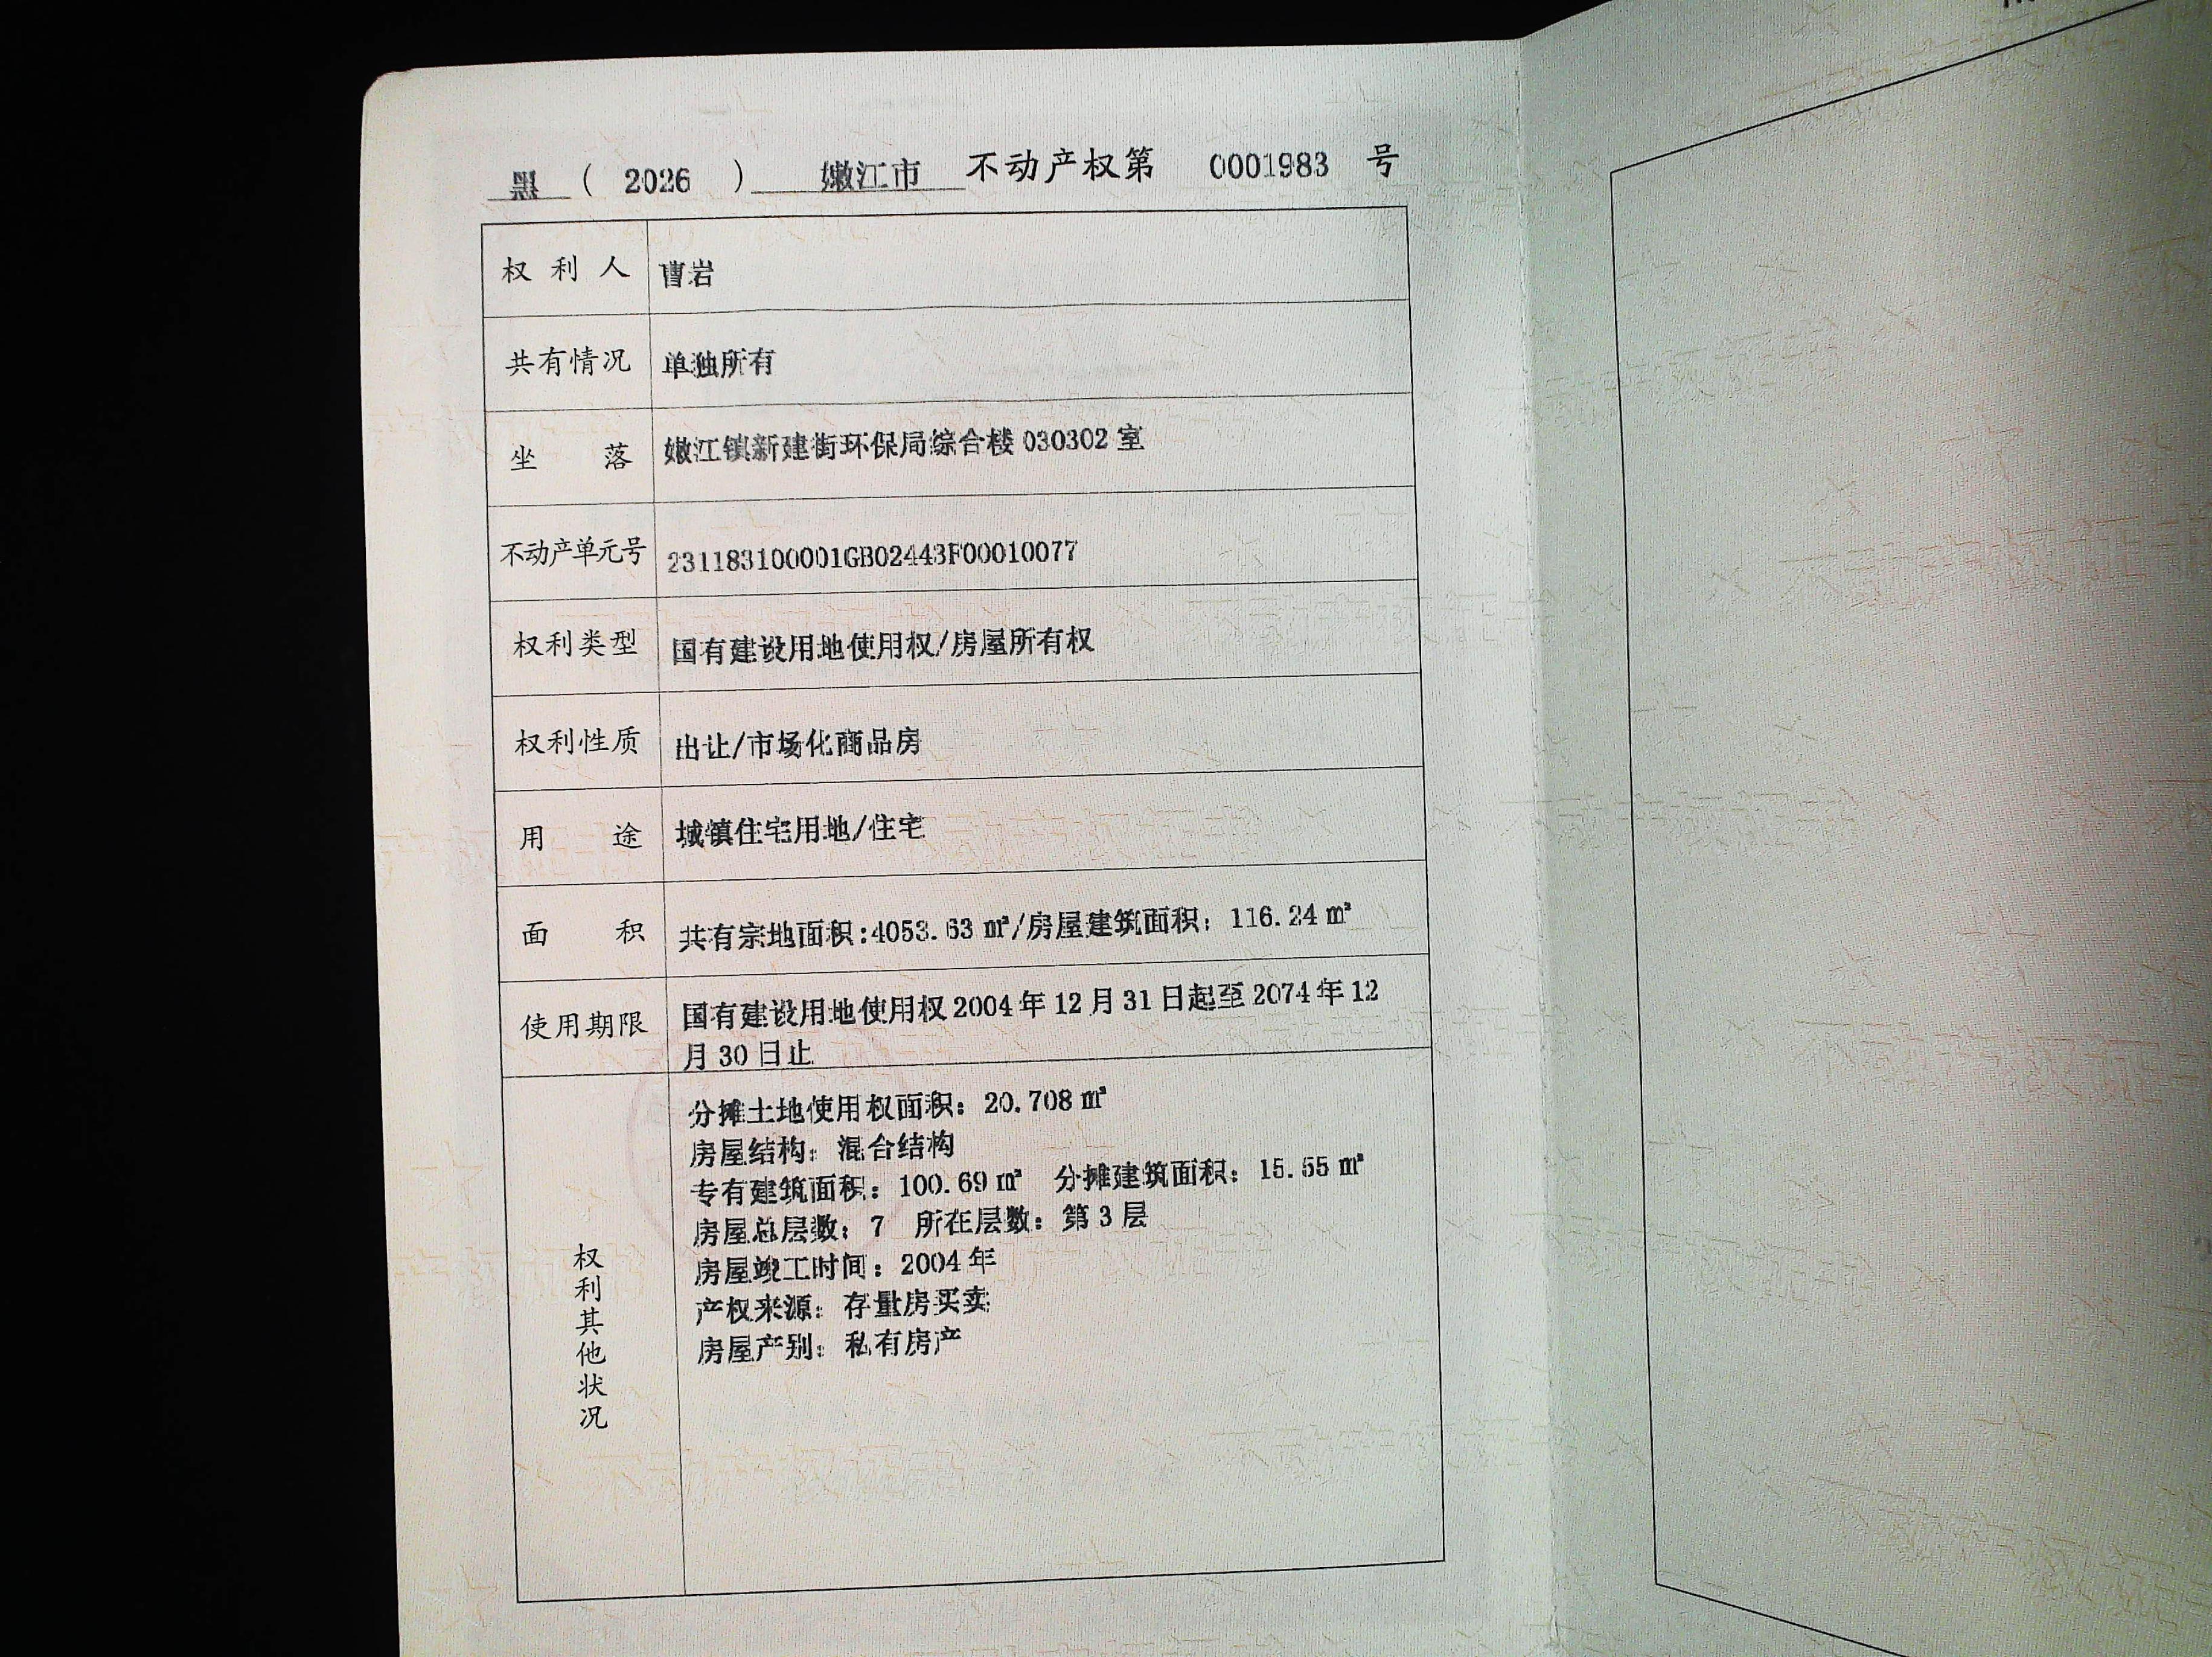 黑（ 2026 ） 嫩江市 不动产权第 0001983 号
权利人 曹岩
共有情况 单独所有
坐落 嫩江镇新建街环保局综合楼030302室
不动产单元号 231183100001GB02443F00010077
权利类型 国有建设用地使用权/房屋所有权
权利性质 出让/市场化商品房
用途 城镇住宅用地/住宅
面积 共有宗地面积:4053.63㎡/房屋建筑面积：116.24㎡
使用期限 国有建设用地使用权2004年12月31日起至2074年12
月30日止
权利其他状况
分摊土地使用权面积：20.708㎡
房屋结构：混合结构
专有建筑面积：100.69㎡ 分摊建筑面积：15.55㎡
房屋总层数：7 所在层数：第3层
房屋竣工时间：2004年
产权来源：存量房买卖
房屋产别：私有房产